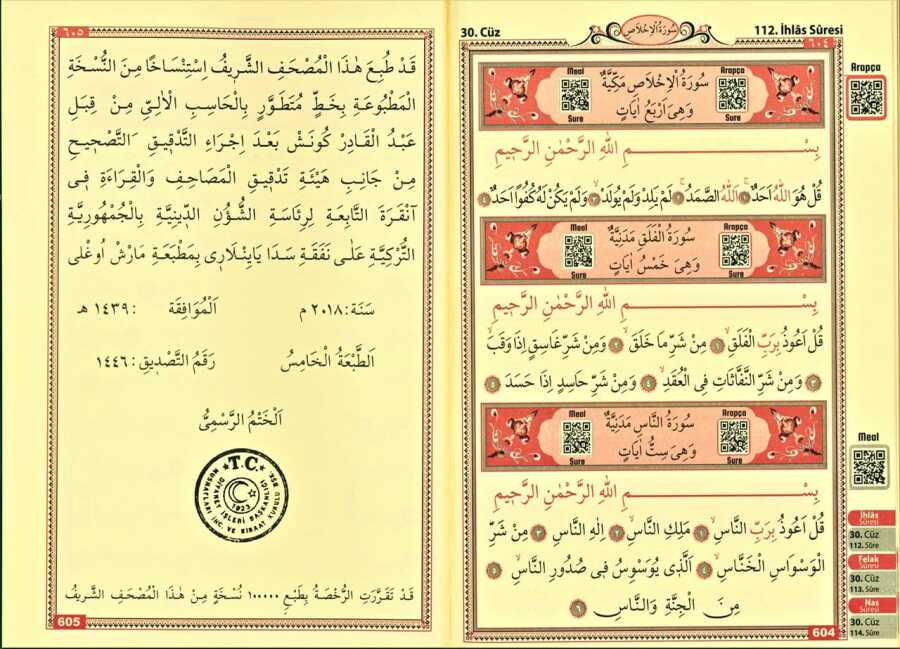 30. Cüz
سُورَةُ الْاِخْلَاصِ
112. İhlâs Sûresi
٦٠٤
Arapça
Meal
Arapça
سُورَةُ الْاِخْلَاصِ مَكِّيَّةٌ
وَهِىَ اَرْبَعُ اٰيَاتٍ
Sure
Sure
بِسْمِ اللّٰهِ الرَّحْمٰنِ الرَّحٖيمِ
قُلْ هُوَ اللّٰهُ اَحَدٌۚ ﴿١﴾ اَللّٰهُ الصَّمَدُۚ ﴿٢﴾ لَمْ يَلِدْ وَلَمْ يُولَدْۙ ﴿٣﴾ وَلَمْ يَكُنْ لَهُ كُفُوًا اَحَدٌ ﴿٤﴾
Meal
Arapça
سُورَةُ الْفَلَقِ مَدَنِيَّةٌ
وَهِىَ خَمْسُ اٰيَاتٍ
Sure
Sure
بِسْمِ اللّٰهِ الرَّحْمٰنِ الرَّحٖيمِ
قُلْ اَعُوذُ بِرَبِّ الْفَلَقِۙ ﴿١﴾ مِنْ شَرِّ مَا خَلَقَۙ ﴿٢﴾ وَمِنْ شَرِّ غَاسِقٍ اِذَا وَقَبَۙ
﴿٣﴾ وَمِنْ شَرِّ النَّفَّاثَاتِ فِى الْعُقَدِۙ ﴿٤﴾ وَمِنْ شَرِّ حَاسِدٍ اِذَا حَسَدَ ﴿٥﴾
Meal
Arapça
سُورَةُ النَّاسِ مَدَنِيَّةٌ
وَهِىَ سِتُّ اٰيَاتٍ
Sure
Sure
بِسْمِ اللّٰهِ الرَّحْمٰنِ الرَّحٖيمِ
قُلْ اَعُوذُ بِرَبِّ النَّاسِۙ ﴿١﴾ مَلِكِ النَّاسِۙ ﴿٢﴾ اِلٰهِ النَّاسِۙ ﴿٣﴾ مِنْ شَرِّ
الْوَسْوَاسِ الْخَنَّاسِۙ ﴿٤﴾ اَلَّذٖى يُوَسْوِسُ فٖى صُدُورِ النَّاسِۙ ﴿٥﴾
مِنَ الْجِنَّةِ وَالنَّاسِ ﴿٦﴾
604
Meal
İhlâs
Sûresi
30. Cüz
112. Sûre
Felak
Sûresi
30. Cüz
113. Sûre
Nas
Sûresi
30. Cüz
114. Sûre
٦٠٥
قَدْ طُبِعَ هٰذَا الْمُصْحَفُ الشَّرٖيفُ اِسْتِنْسَاخًا مِنَ النُّسْخَةِ
الْمَطْبُوعَةِ بِخَطٍّ مُتَطَوَّرٍ بِالْحَاسِبِ الْاٰلِىّٖ مِنْ قِبَلِ
عَبْدُ الْقَادِرْ كُونَشْ بَعْدَ اِجْرَاءِ التَّدْقٖيقِ التَّصْحٖيحِ
مِنْ جَانِبِ هَيْئَةِ تَدْقٖيقِ الْمَصَاحِفِ وَالْقِرَاءَةِ فٖى
آنْقَرَةَ التَّابِعَةِ لِرِئَاسَةِ الشُّؤُنِ الدّٖينِيَّةِ بِالْجُمْهُورِيَّةِ
التُّرْكِيَّةِ عَلٰى نَفَقَةِ سَدَا يَايِنْلَارٖى بِمَطْبَعَةِ مَارْشْ اُوغْلٖى
سَنَة: ٢٠١٨ م اَلْمُوَافِقَة : ١٤٣٩ هـ
اَلطَّبْعَةُ الْخَامِسُ رَقَمُ التَّصْدٖيقِ: ١٤٤٦
اَلْخَتْمُ الرَّسْمِىُّ
T.C.
DİYANET İŞLERİ BAŞKANLIĞI
MUSHAFLARI İNC. VE KIRAAT KURULU
1923
قَدْ تَقَرَّرَتِ الرُّخْصَةُ بِطَبْعِ ١٠٠٠٠٠ نُسْخَةٍ مِنْ هٰذَا الْمُصْحَفِ الشَّرٖيفِ
605